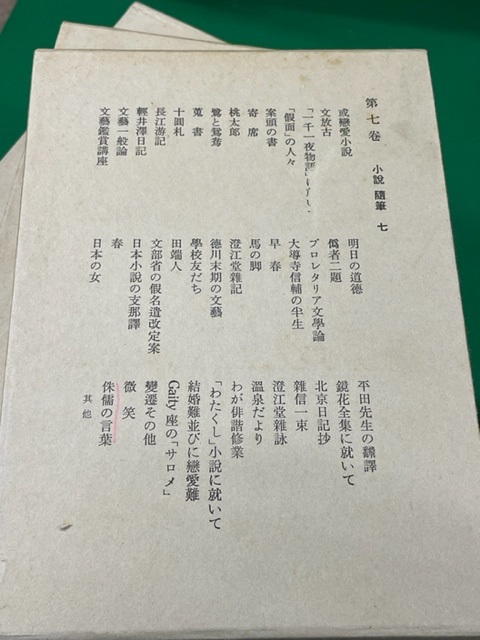 第七卷 小說 隨筆 七
或戀愛小說
文放古
「一千一夜物語」に就いて
案頭の書
「假面」の人々
寄席
桃太郎
鷺と鴛鴦
蒐書
十圓札
長江游記
輕井澤日記
文藝一般論
文藝鑑賞講座
明日の道德
僞者二題
プロレタリア文學論
大導寺信輔の半生
早春
馬の脚
澄江堂雜記
德川末期の文藝
學校友だち
田端人
文部省の假名遣改定案
日本小說の支那譯
春
日本の女
平田先生の飜譯
鏡花全集に就いて
北京日記抄
雜信一束
澄江堂雜詠
溫泉だより
わが俳諧修業
「わたくし」小說に就いて
結婚難並びに戀愛難
Gaity座の「サロメ」
變遷その他
微笑
侏儒の言葉
其他